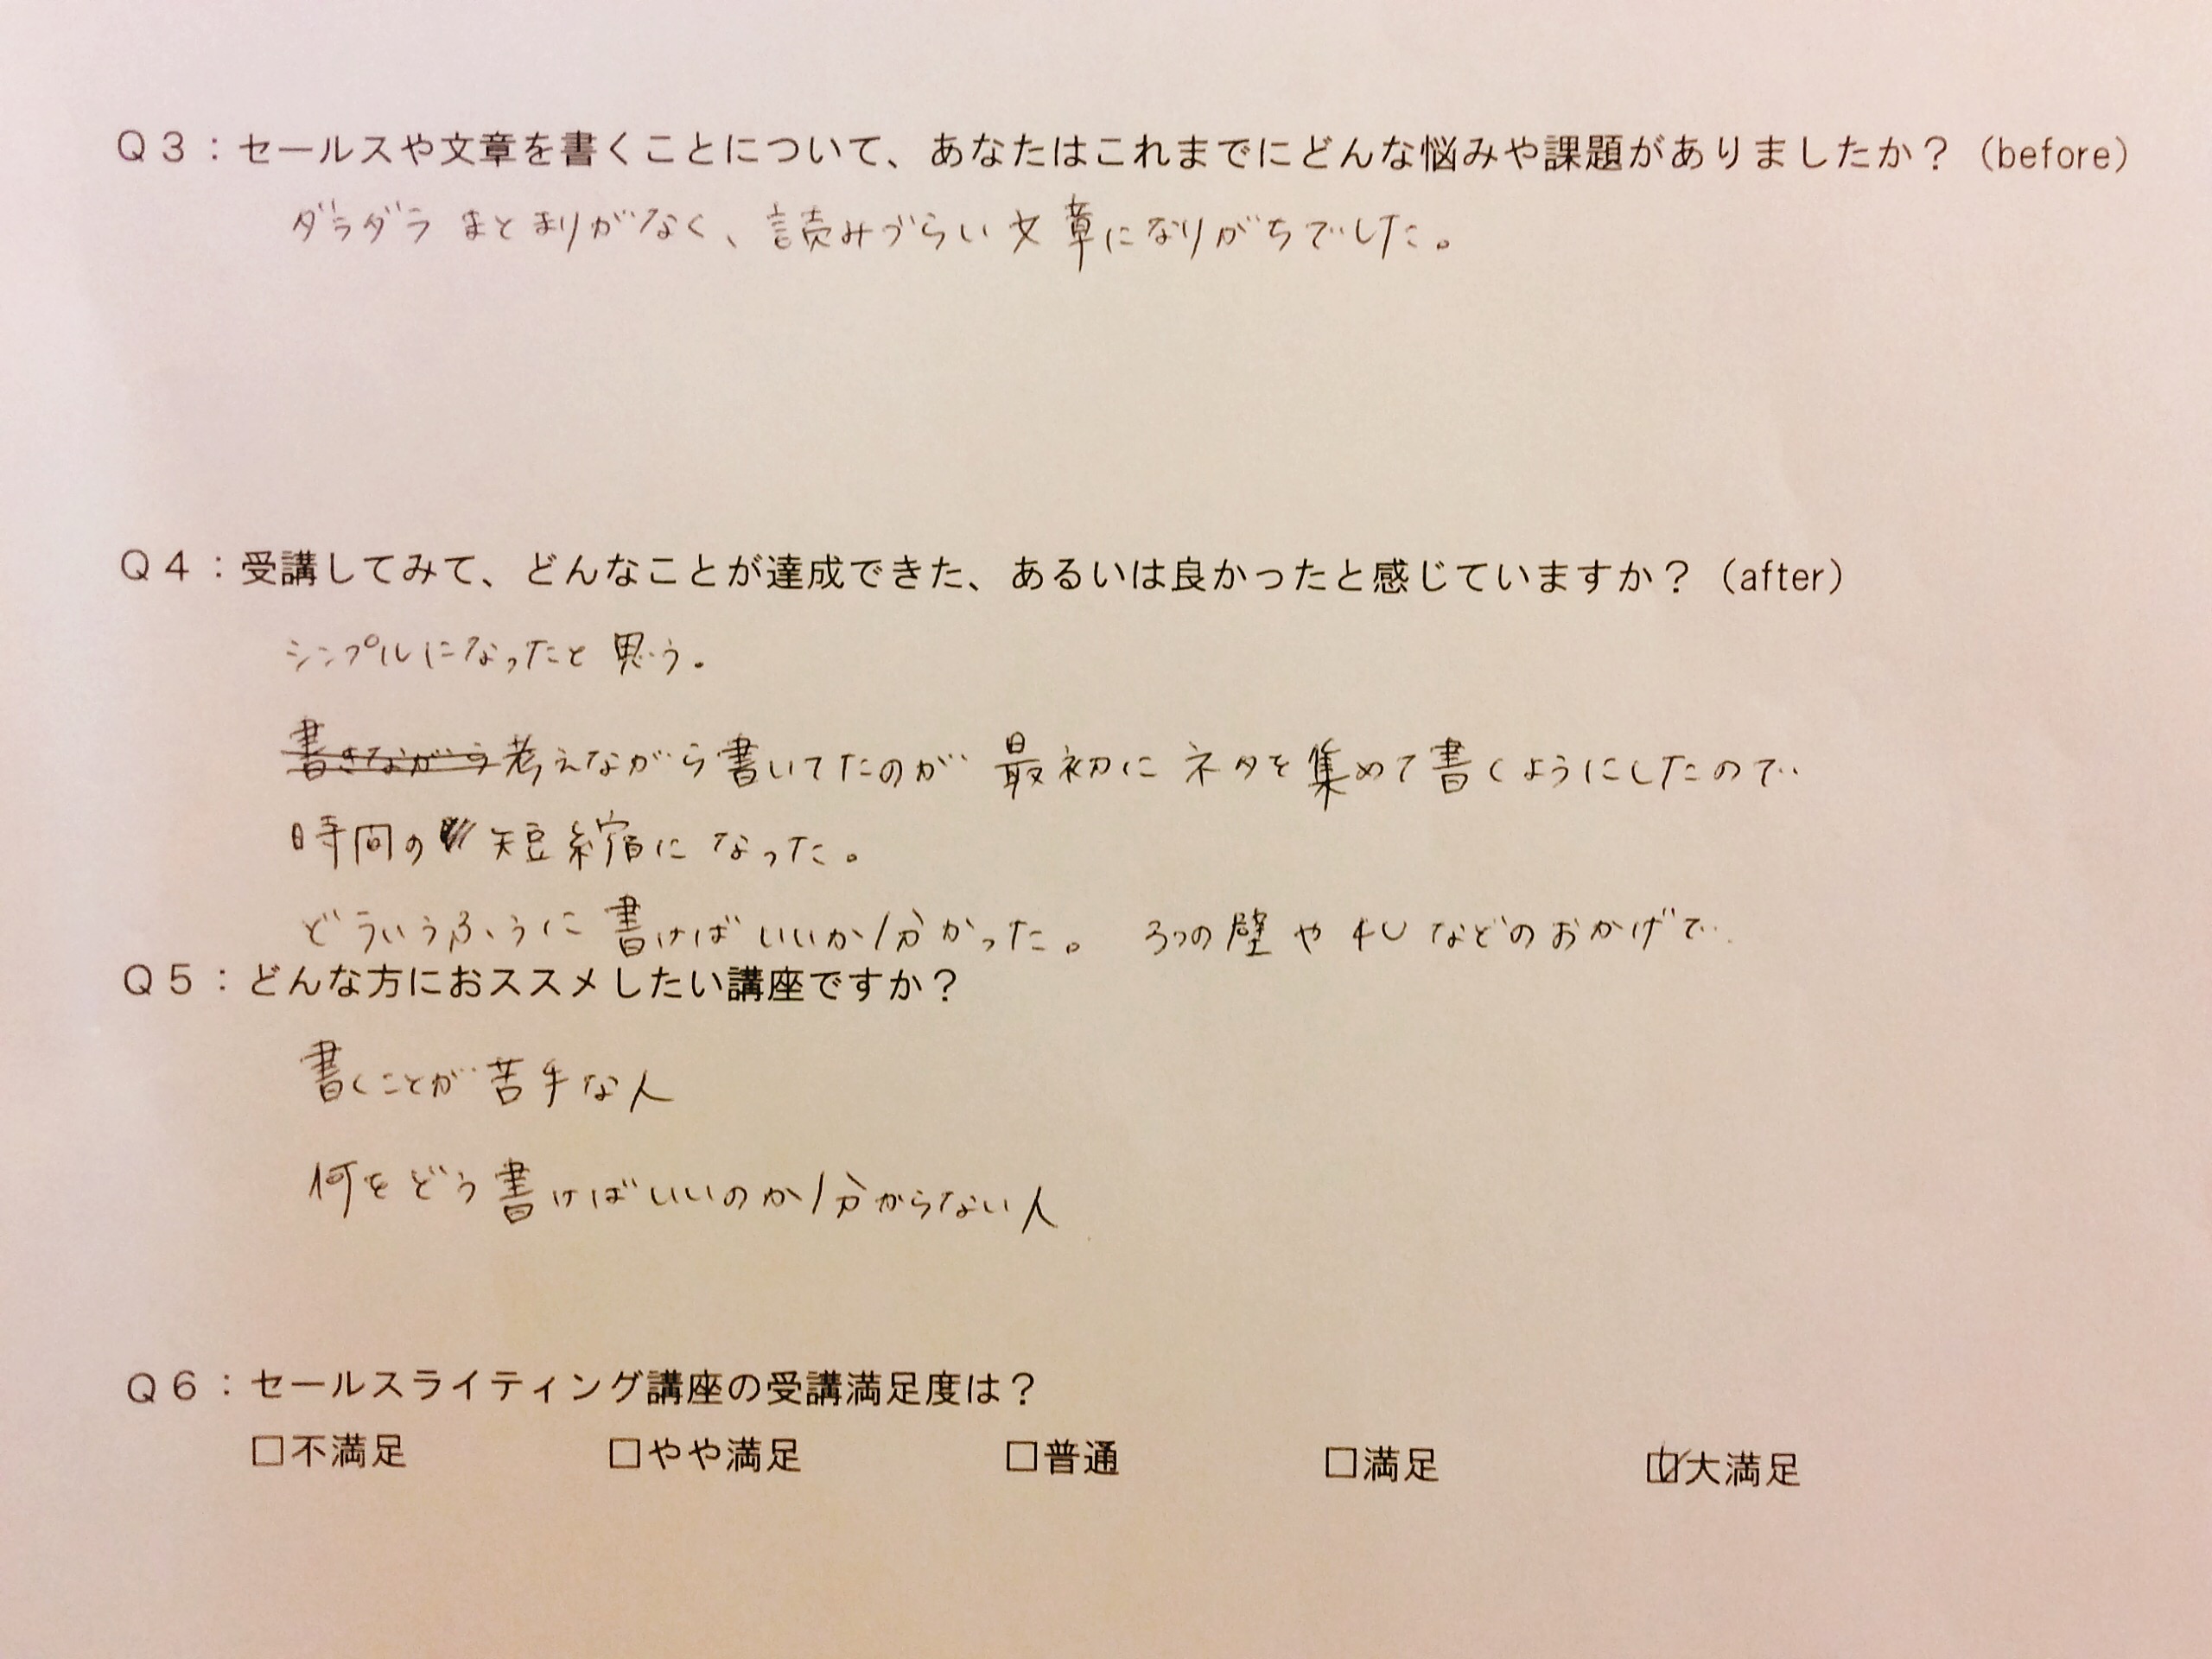 Q3：セールスや文章を書くことについて、あなたはこれまでにどんな悩みや課題がありましたか？（before）
ダラダラ まとまりがなく、読みづらい文章になりがちでした。
Q4：受講してみて、どんなことが達成できた、あるいは良かったと感じていますか？（after）
シンプルになったと思う。
書きながら考えながら書いてたのが 最初に ネタを集めて書くようにしたので
時間の 短縮に なった。
どういうふうに書けばいいか分かった。 3つの壁や4Uなどのおかげで
Q5：どんな方におススメしたい講座ですか？
書くことが苦手な人
何をどう書けばいいのか分からない人
Q6：セールスライティング講座の受講満足度は？
□不満足 □やや満足 □普通 □満足 ☑大満足